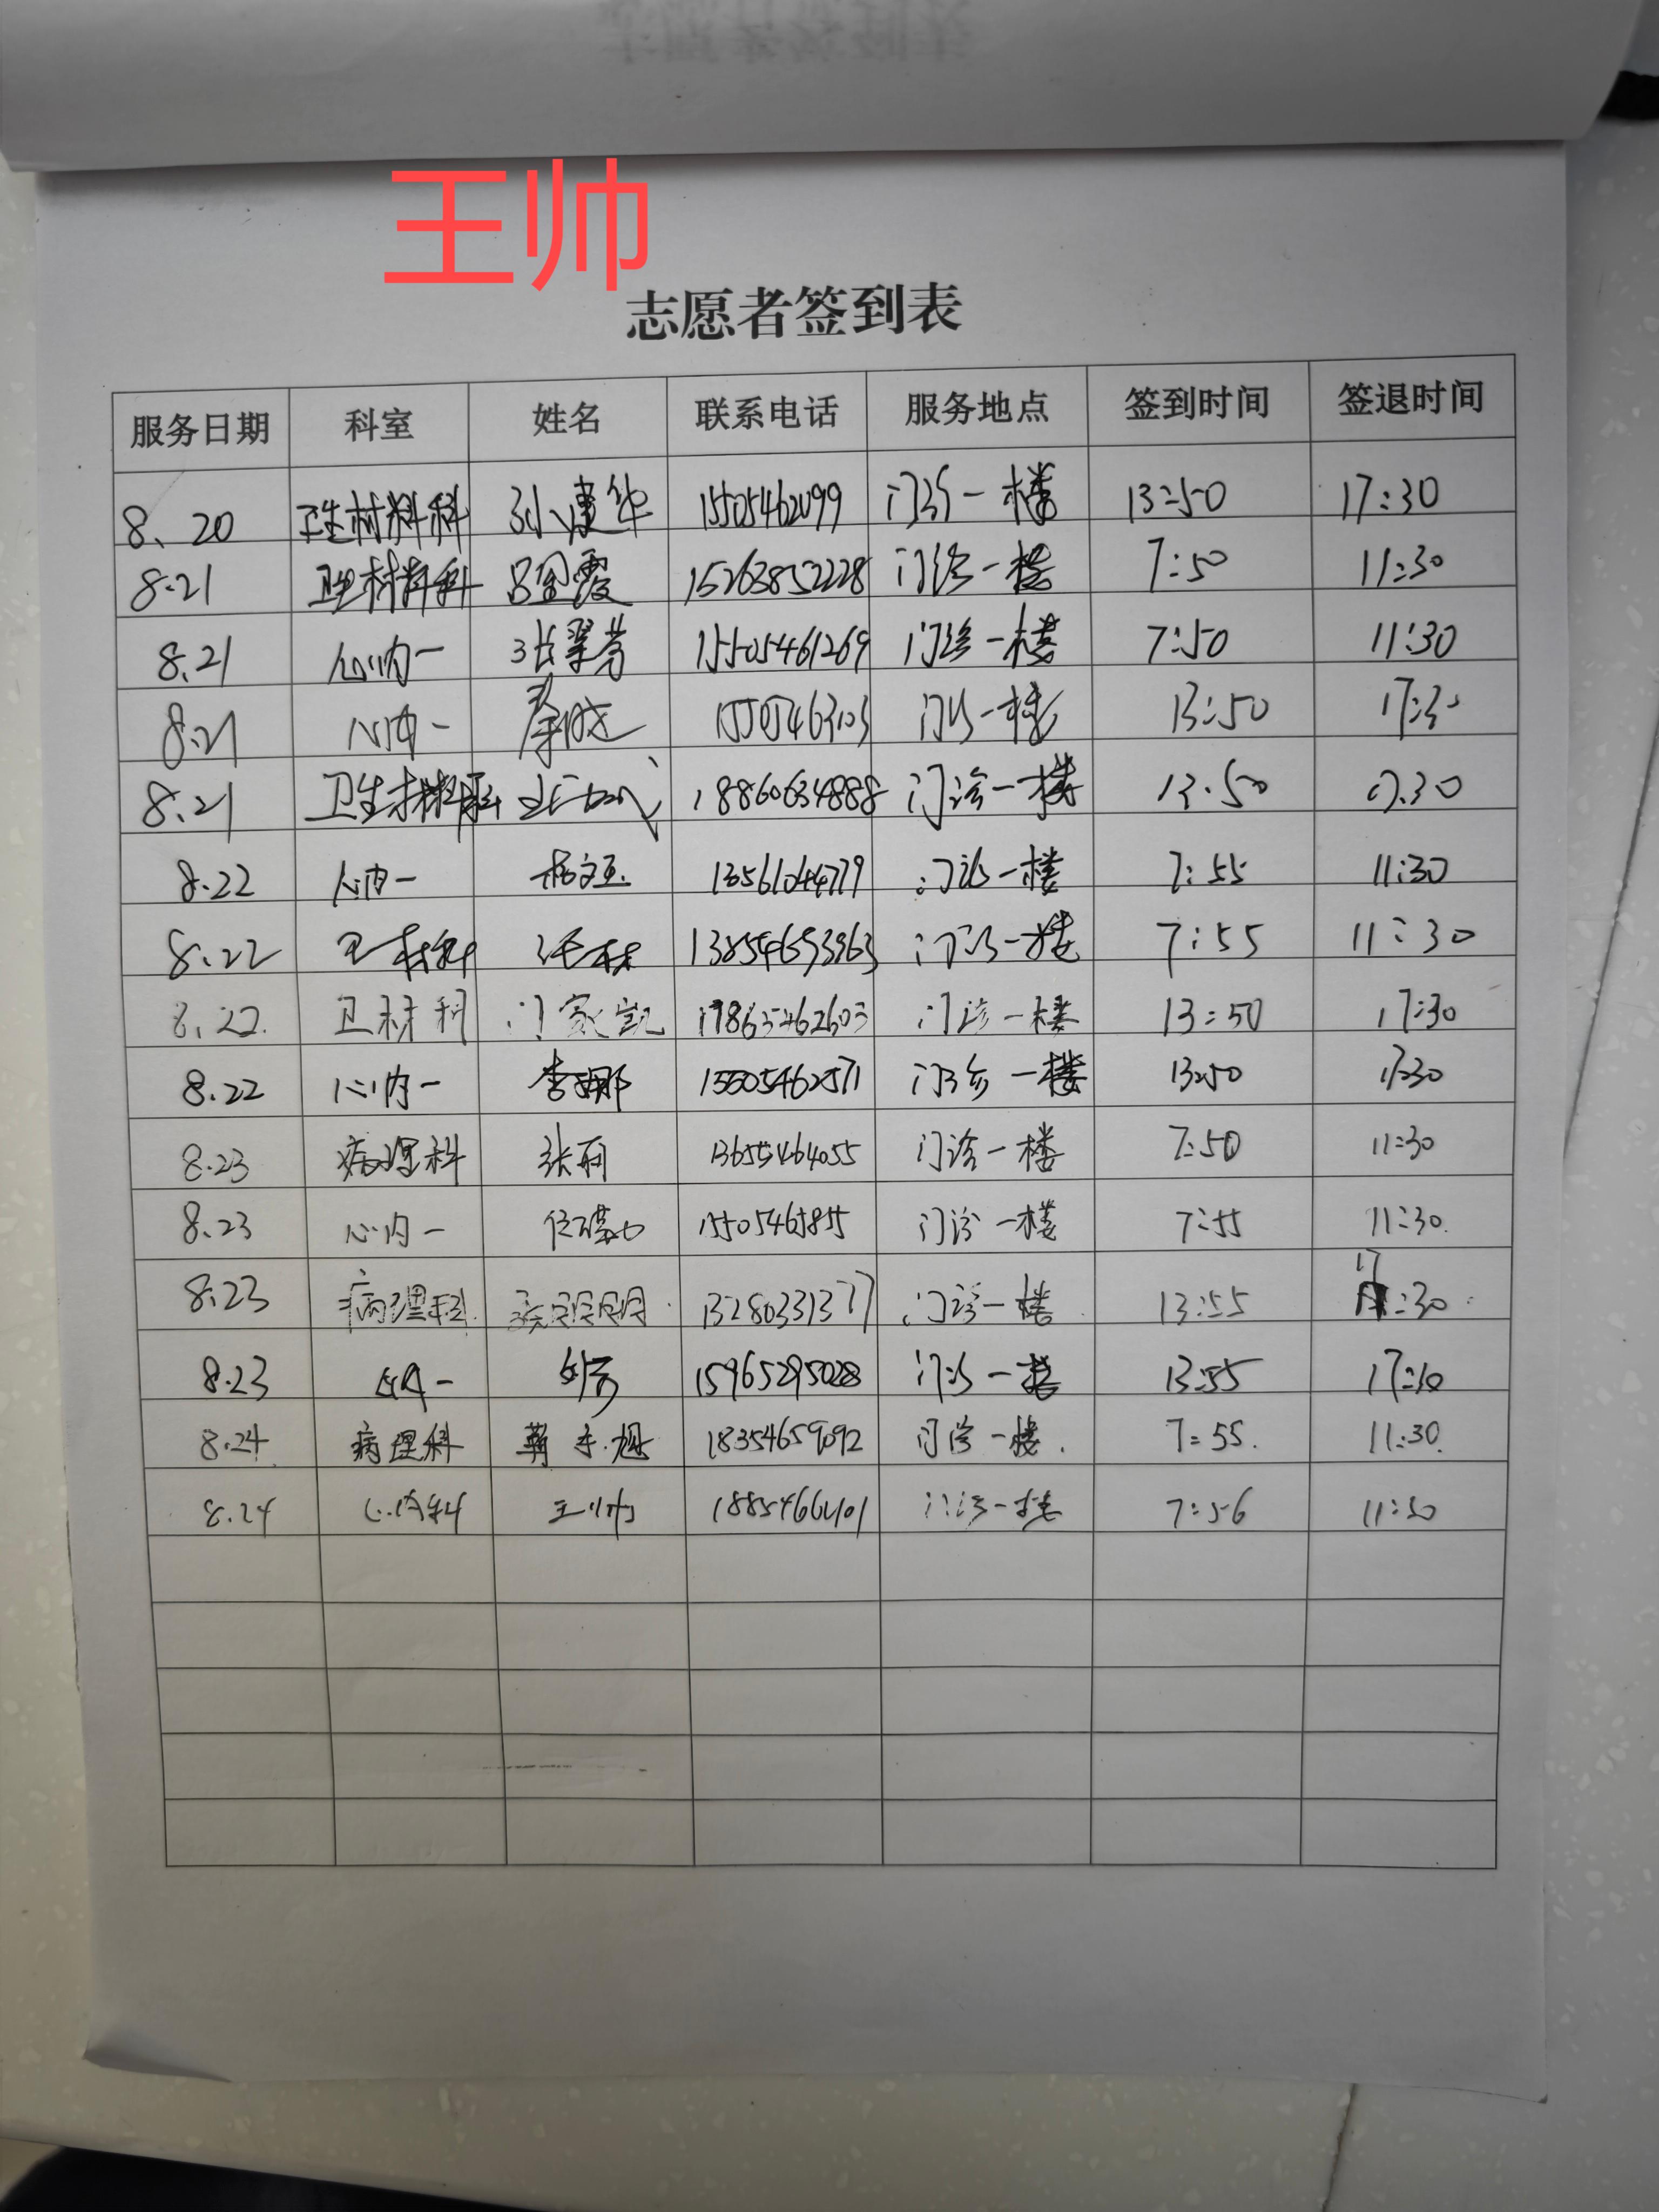 王帅
志愿者签到表
服务日期 科室 姓名 联系电话 服务地点 签到时间 签退时间
8、20 卫生材料科 孙建华 15505462099 门诊一楼 13:50 17:30
8.21 卫生材料科 吕金霞 15263852228 门诊一楼 7:50 11:30
8.21 心内一 张翠芳 15505461269 门诊一楼 7:50 11:30
8.21 心内一 门诊一楼 13:50 17:30
8.21 卫生材料科 18860634888 门诊一楼 13.50 17.30
8.22 心内一 杨文玉 13561044779 门诊一楼 7:55 11:30
8.22 卫材科 13854693963 门诊一楼 7:55 11:30
8.22. 卫材科 门家凯 17865462603 门诊一楼 13:50 17:30
8.22 心内一 李娜 15505462571 门诊一楼 13:50 17:30
8.23 病理科 张丽 13655464055 门诊一楼 7:50 11:30
8.23 心内一 15505465855 门诊一楼 7:55 11:30.
8.23 病理科. 13280331377 门诊一楼 13:55 17:30
8.23 心内一 15965295028 门诊一楼 13:55 17:10
8.24 病理科 18354659092 门诊一楼. 7:55. 11:30.
8.24 心内科 王帅 门诊一楼 7:56 11:30